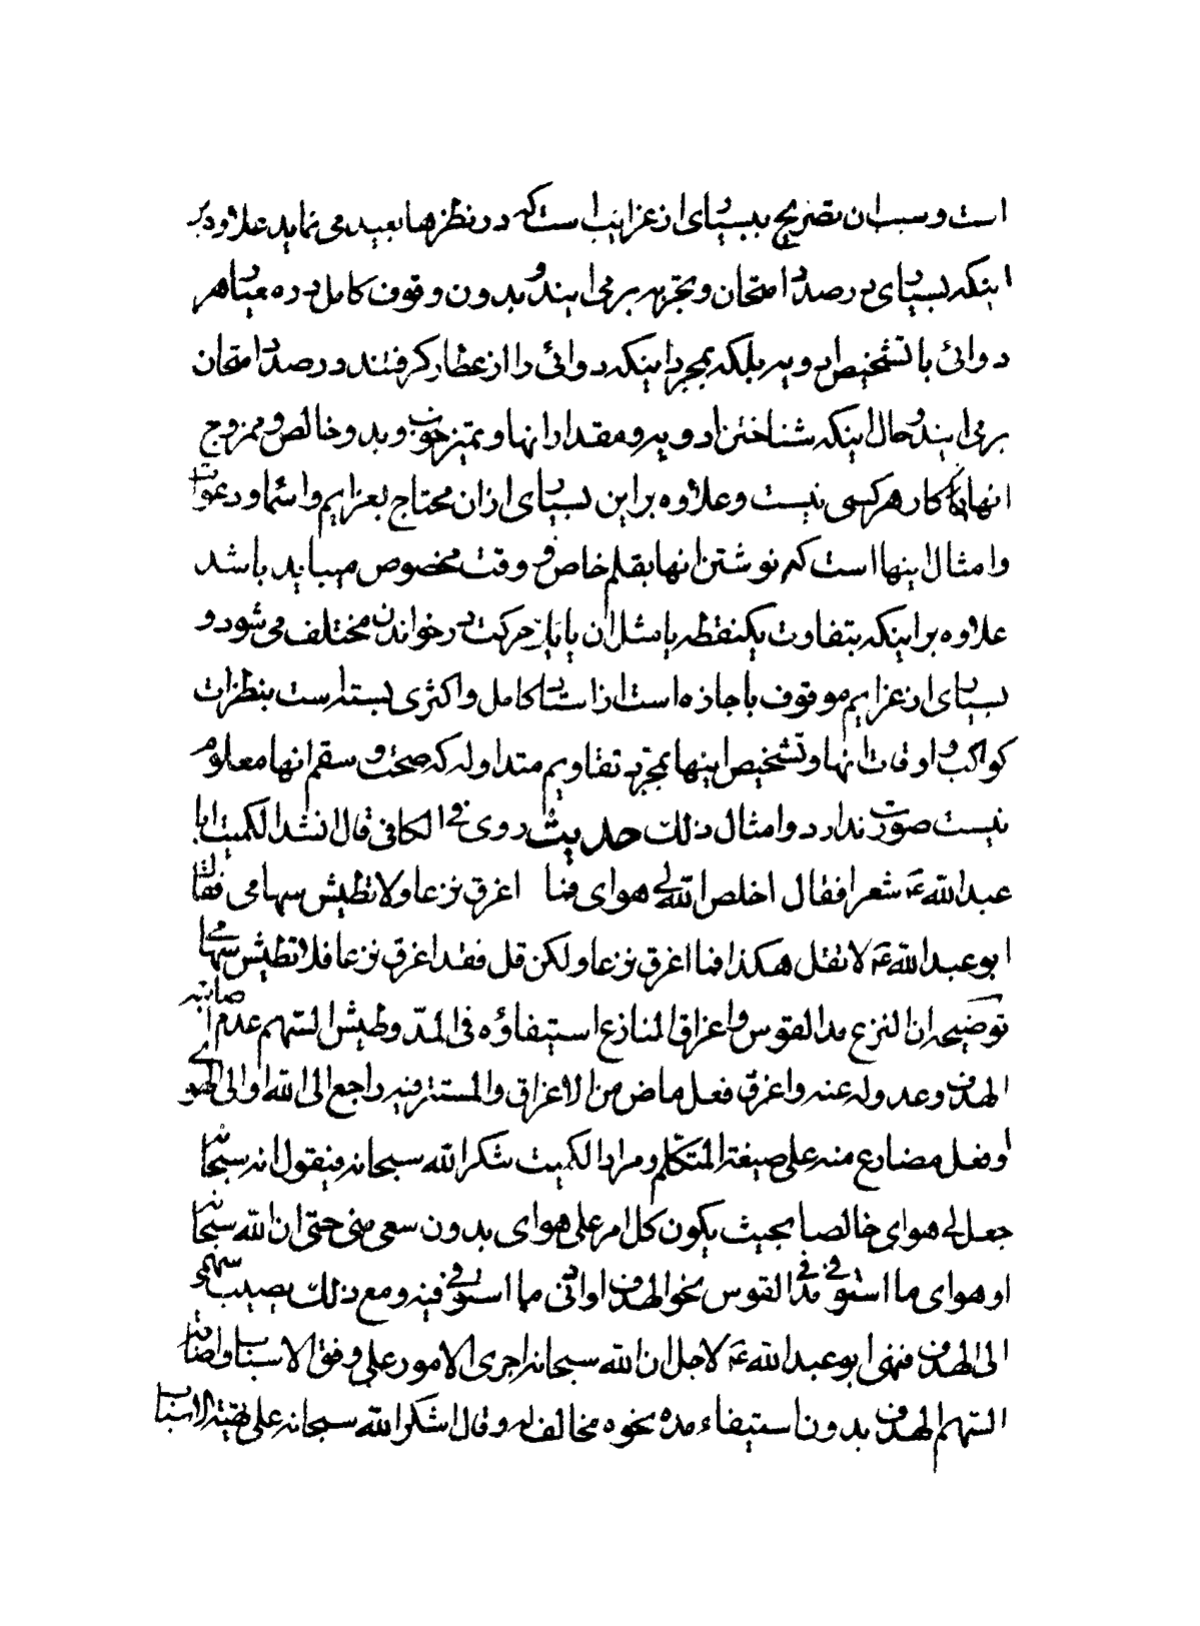 است و سبب ان تصریح بسیاری از غرایب است که در نظرها بعید می نماید علاوه بر
اینکه بسیاری در صدد امتحان و تجربه بر می ایند و بدون وقوف کامل در معیار هر
دوائی یا تشخیص ادویه بلکه بمجرد اینکه دوائی را از عطار گرفتند در صدد امتحان
بر می ایند و حال اینکه شناختن ادویه و مقدار انها و تمیز خوب و بد و خالص و ممزوج
انها کار هر کسی نیست و علاوه بر این بسیاری از ان محتاج بعزایم و اسما و دعوات
و امثال اینها است که نوشتن انها بقلم خاص و وقت مخصوص میباید باشد
علاوه بر اینکه بتفاوت یکنقطه یا مثل ان یا باز حرکت در خواندن مختلف می شود و
بسیاری از عزایم موقوف باجازه است از استاد کامل و اکثری بسته است بنظرات
کواکب و اوقات انها و تشخیص اینها بمجرد تقاویم متداوله که صحت و سقم انها معلوم
نیست صورت ندارد و امثال ذلک حدیث روی فی الکافی قال انشد الکمیت ابا
عبد الله ع شعرا فقال اخلص الله لی هوای فما اغرق نزعا و لا تطیش سهامی فقال
ابو عبد الله ع لا تقل هکذا فما اغرق نزعا و لکن قل فقد اغرق نزعا فلا تطیش سهامی
توضیحه ان النزع مد القوس و اغراق النازع استیفاؤه فی المد و طیش السهم عدم اصابته
الهدف و عدوله عنه و اغرق فعل ماض من الاغراق و المستتر فیه راجع الی الله او الی الهوای
او فعل مضارع منه علی صیغة المتکلم و مراد الکمیت شکر الله سبحانه فیقول انه سبحانه
جعل لی هوای خالصا بحیث یکون کل امر علی هوای بدون سعی منی حتی ان الله سبحانه
او هوای ما استوفی مد القوس نحو الهدف او انی ما استوفی فیه و مع ذلک یصیب سهمی
الی الهدف فنهی ابو عبد الله ع لاجل ان الله سبحانه اجری الامور علی وفق الاسباب و اصابة
السهم الهدف بدون استیفاء مده نحوه مخالف له و قال اشکر الله سبحانه علی تهیئة الاسباب